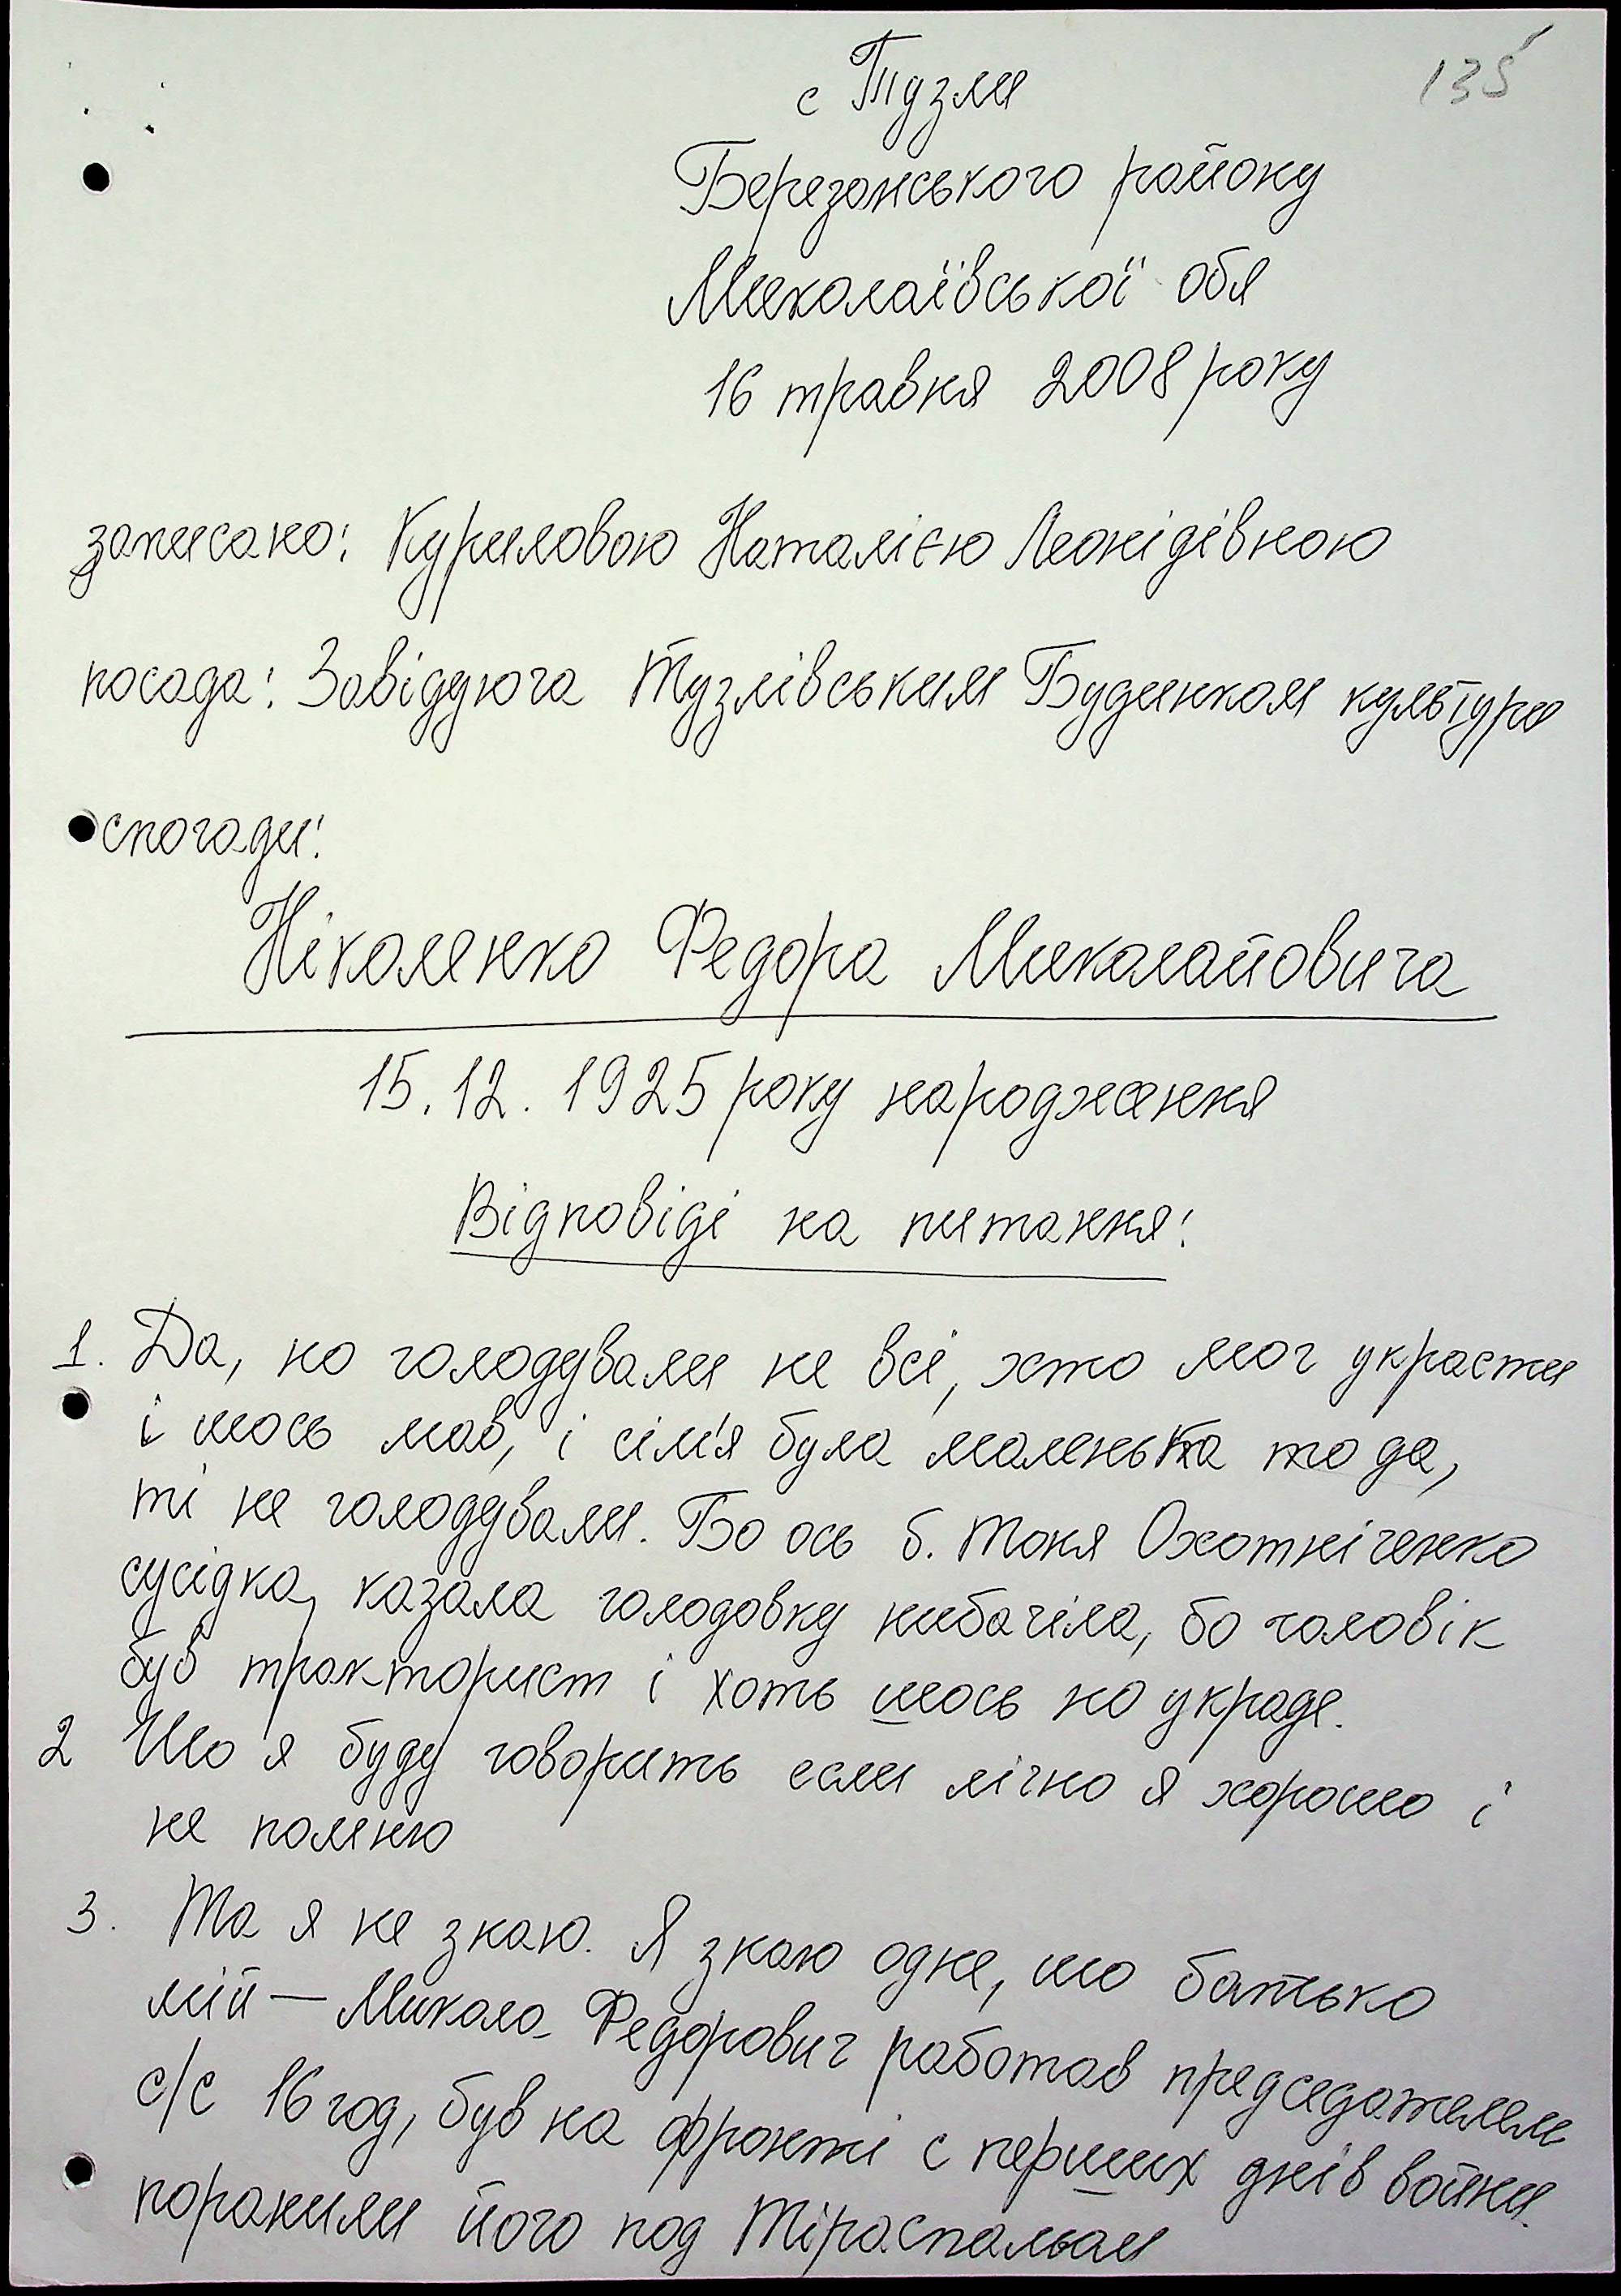 135
с Тузли
Березанського району
Миколаївської обл
16 травня 2008 року
записано: Куриловою Наталією Леонідівною
посада: Завідуюча Тузлівським Будинком культури
спогади:
Ніколенко Федора Миколайовича
15.12.1925 року народження
Відповіді на питання:
1. Да, но голодували не всі, хто мог украсти
і шось мав, і сім'я була маленька то да,
ті не голодували. Бо ось б. Тоня Охотніченко
сусідка, казала голодовку нибачіла, бо чоловік
був тракторист і хоть шось но украде.
2 Шо я буду говорить если лічно я хорошо і
не помню
3. Та я не знаю. Я знаю одне, шо батько
мій – Микола Федорович работав председателем
с/с 16 год, був на фронті с перших днів войни.
поранили його под Тіраспальом